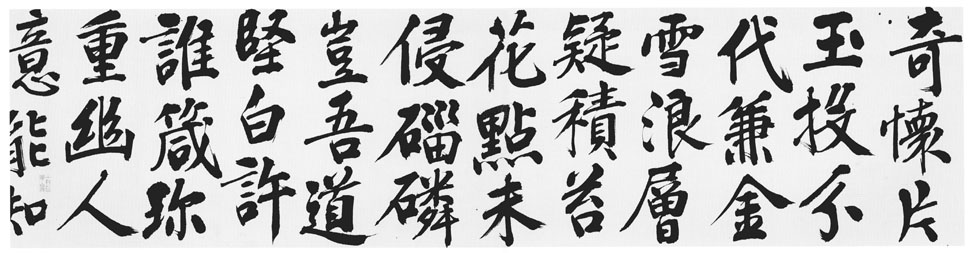 奇懷片
玉投不
代兼金
雪浪層
疑積苔
花點未
侵磷
豈吾道
堅白許
誰箴珎
重幽人
意能知